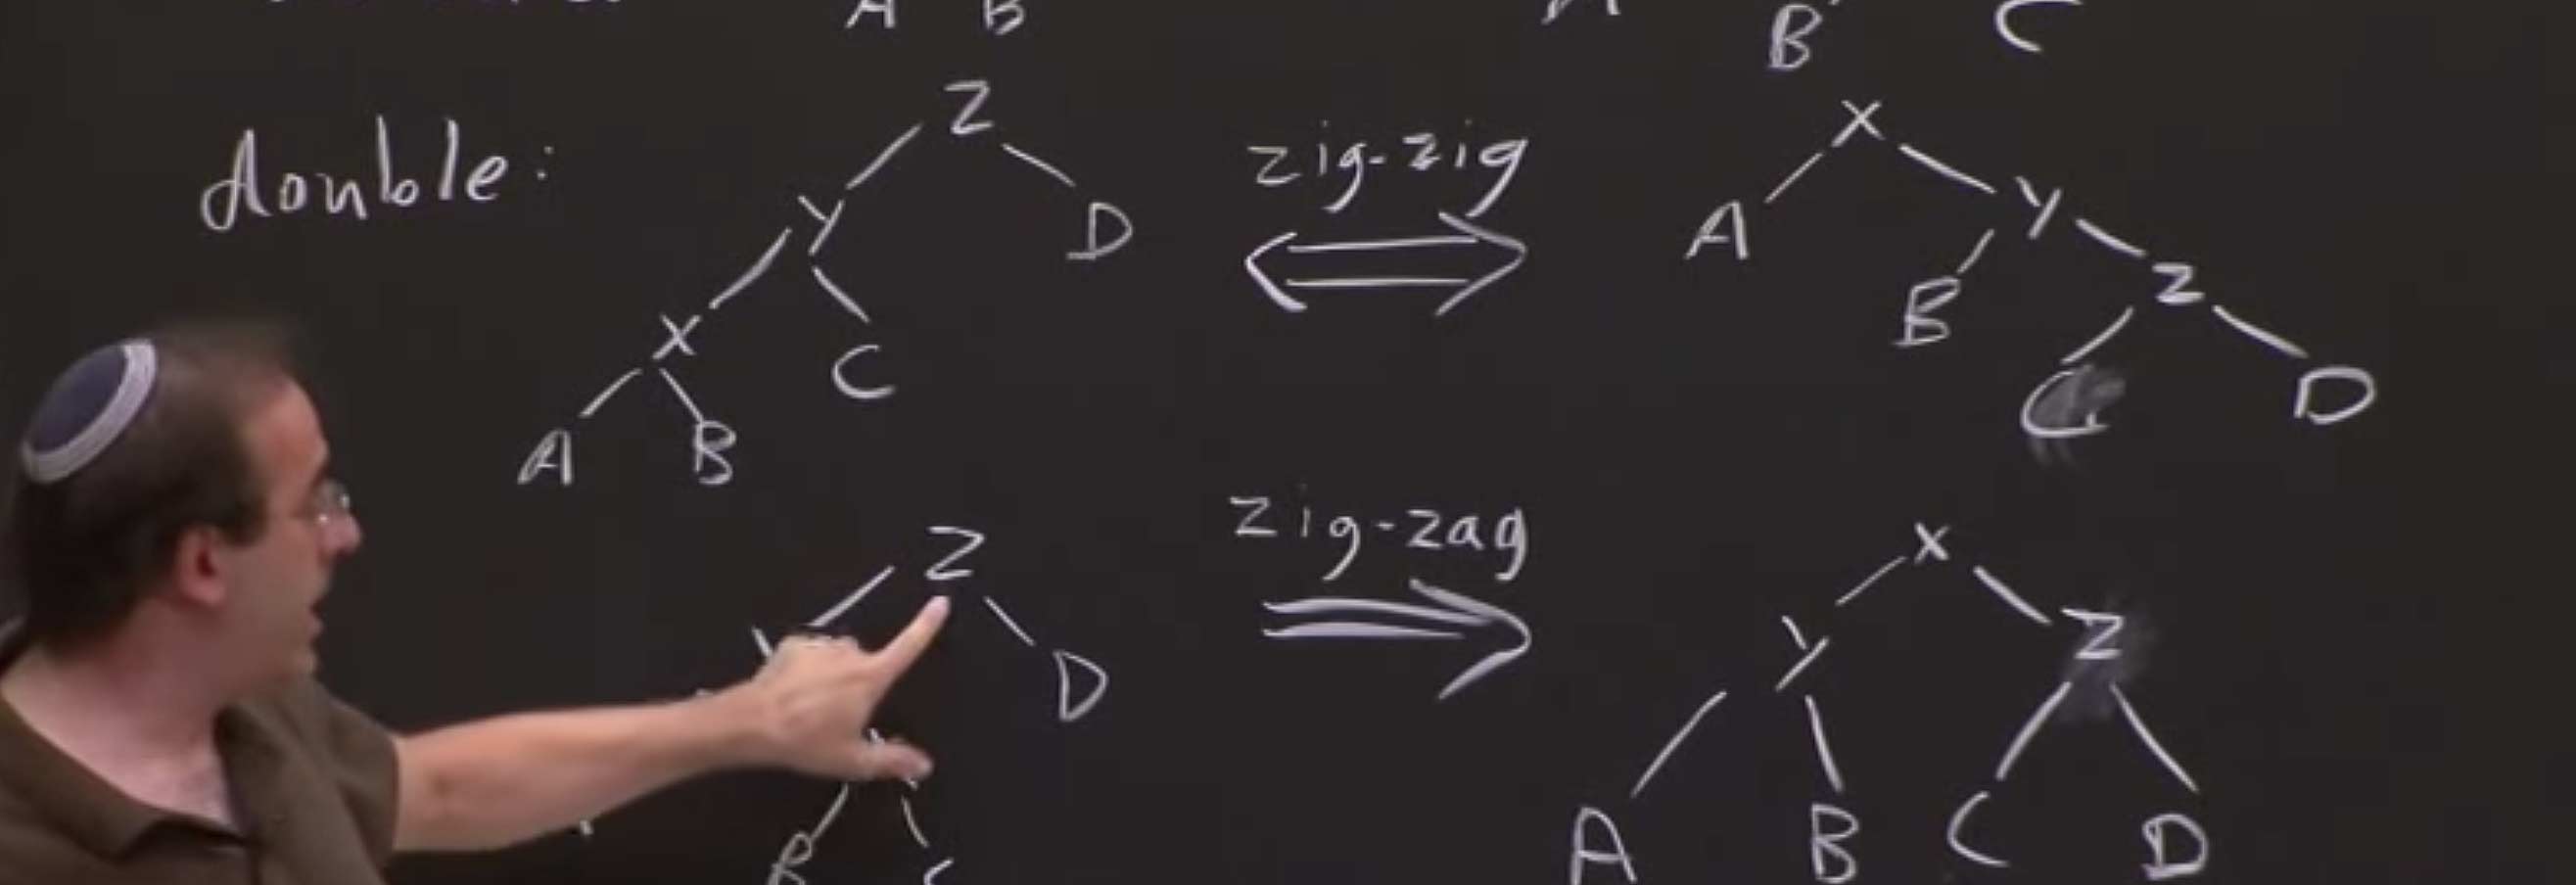 A B B C
double:
Z zig-zig X
Y D A Y
X C B Z
A B C D
Z zig-zag X
D Y Z
B A B C D